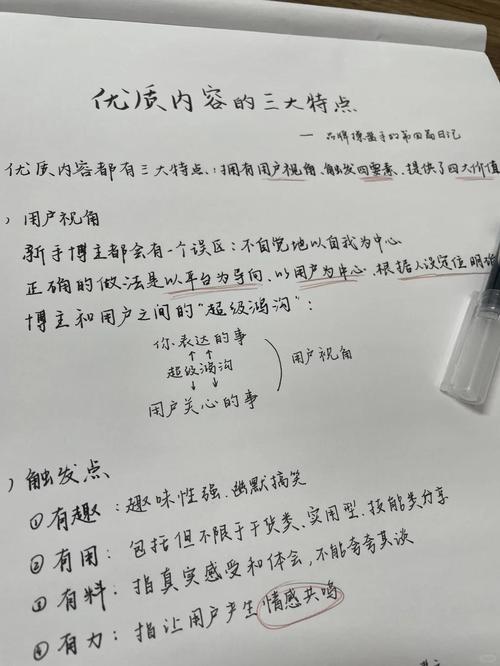 优质内容的三大特点
— 品牌操盘手的第四篇日记
优质内容都有三大特点:拥有用户视角、触发四要素、提供了四大价值
) 用户视角
新手博主都会有一个误区:不自觉地以自我为中心
正确的做法是以平台为导向、以用户为中心、根据人设定位明确
博主和用户之间的“超级鸿沟”:
你表达的事
↑ ↑
超级鸿沟
↓ ↓
用户关心的事
用户视角
) 触发点
① 有趣:趣味性强、幽默搞笑
② 有用:包括但不限于干货类、实用型、技能类分享
③ 有料:指真实感受和体会,不能夸夸其谈
④ 有力:指让用户产生情感共鸣